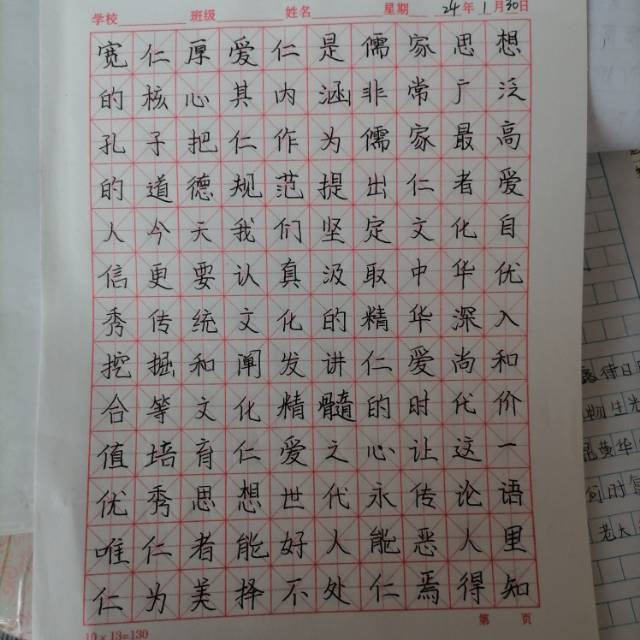 学校 班级 姓名 星期 24年1月30日
宽仁厚爱仁是儒家思想
的核心其内涵非常广泛
孔子把仁作为儒家最高
的道德规范提出仁者爱
人今天我们坚定文化自
信更要认真汲取中华优
秀传统文化的精华深入
挖掘和阐发讲仁爱尚和
合等文化精髓的时代价
值培育仁爱之心让这一
优秀思想世代永传论语
唯仁者能好人能恶人里
仁为美择不处仁焉得知
10×13=130 第 页